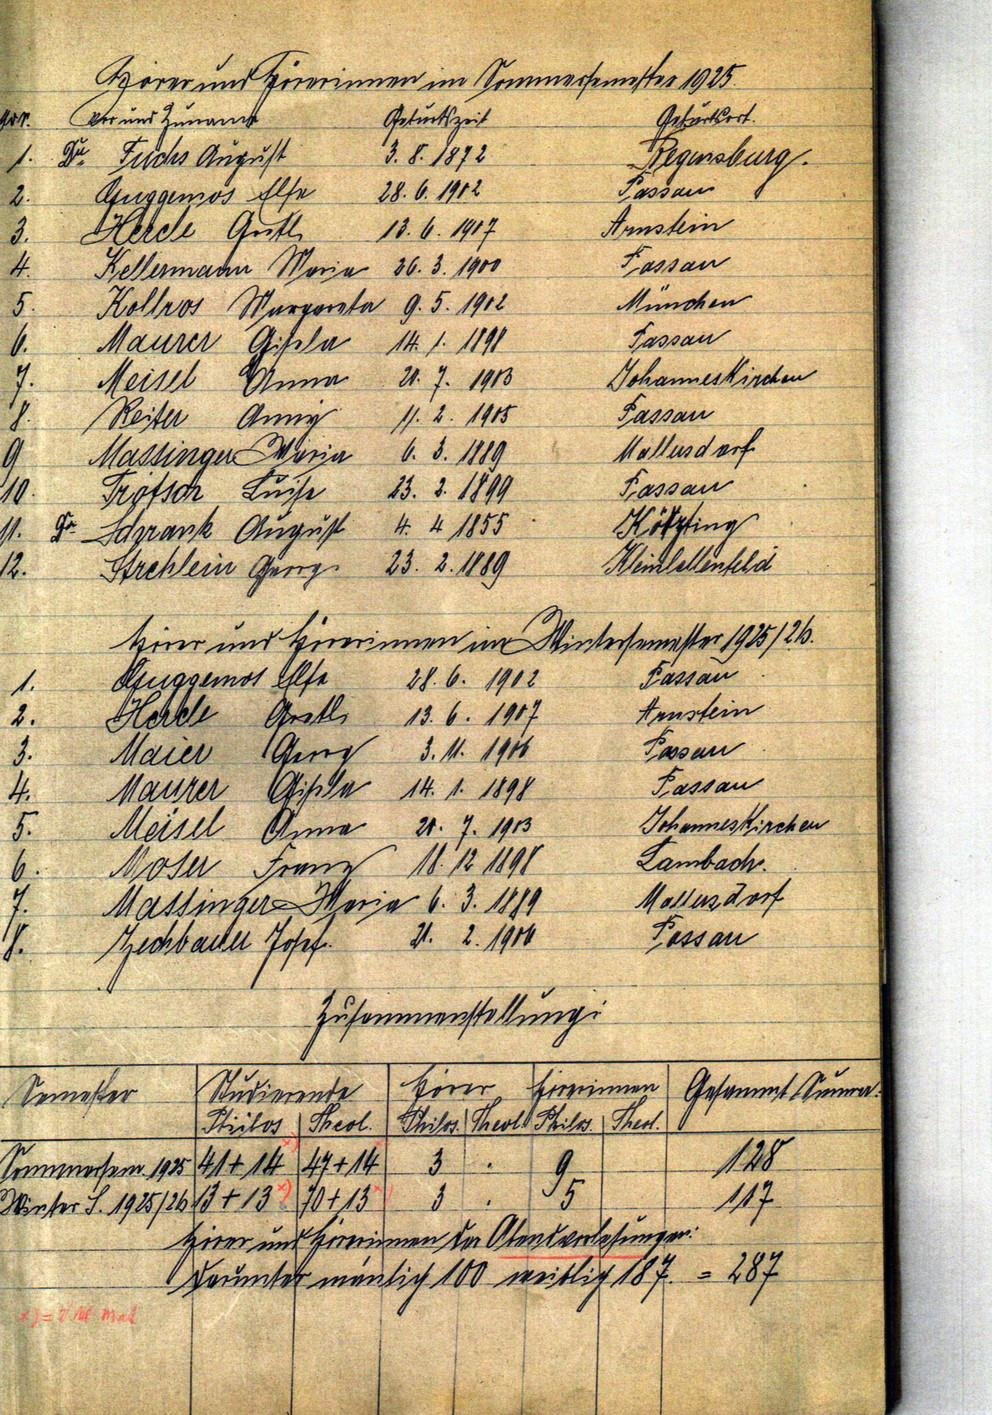 Hörer und Hörerinnen im Sommersemester 1925.
Vor und Zuname Geburtszeit Geburtsort.
1. Dr. Fuchs August 3. 8. 1872 Regensburg.
2. Guggemos Else 28. 6. 1902 Passau
3. Herde Gretl 13. 6. 1907 Arnstein
4. Kellermann Maria 26. 3. 1900 Passau
5. Kollros Margareta 9. 5. 1902 München
6. Maurer Gisela 14. 1. 1898 Passau
7. Meisel Anna 20. 7. 1903 Johanneskirchen
8. Reiter Anny 11. 2. 1905 Passau
9 Massinger Maria 6. 3. 1889 Mallersdorf
10. Trötsch Luise 23. 2. 1899 Passau
11. Dr. Schrank August 4. 4 1855 Kötzting
12. Strehlein Georg. 23. 2. 1889
Hörer und Hörerinnen im Wintersemester 1925/26.
1. Guggemos Else 28. 6. 1902 Passau
2. Herde Gretl 13. 6. 1907 Arnstein
3. Maier Georg 3. 11. 1906 Passau
4. Maurer Gisela 14. 1. 1898 Passau
5. Meisel Anna 20. 7. 1903 Johanneskirchen
6. Moser Franz 18. 12 1898 Lambach.
7. Massinger Maria 6. 3. 1889 Mallersdorf
8. Zechbauer Josef. 21. 2. 1906 Passau
Zusammenstellung:
Semester Studierende Hörer Hörerinnen Gesammt Summa:
Philos Theol. Philos. Theol. Philos. Theol.
Sommersem. 1925 41 + 14 x) 47 + 14 3 . 9 128
Winter S. 1925/26 13 + 13 x) 70 + 13 x) 3 . 5 117
Hörer und Hörerinnen der Abendvorlesungen:
Darunter mänlich 100 weiblich 187. = 287